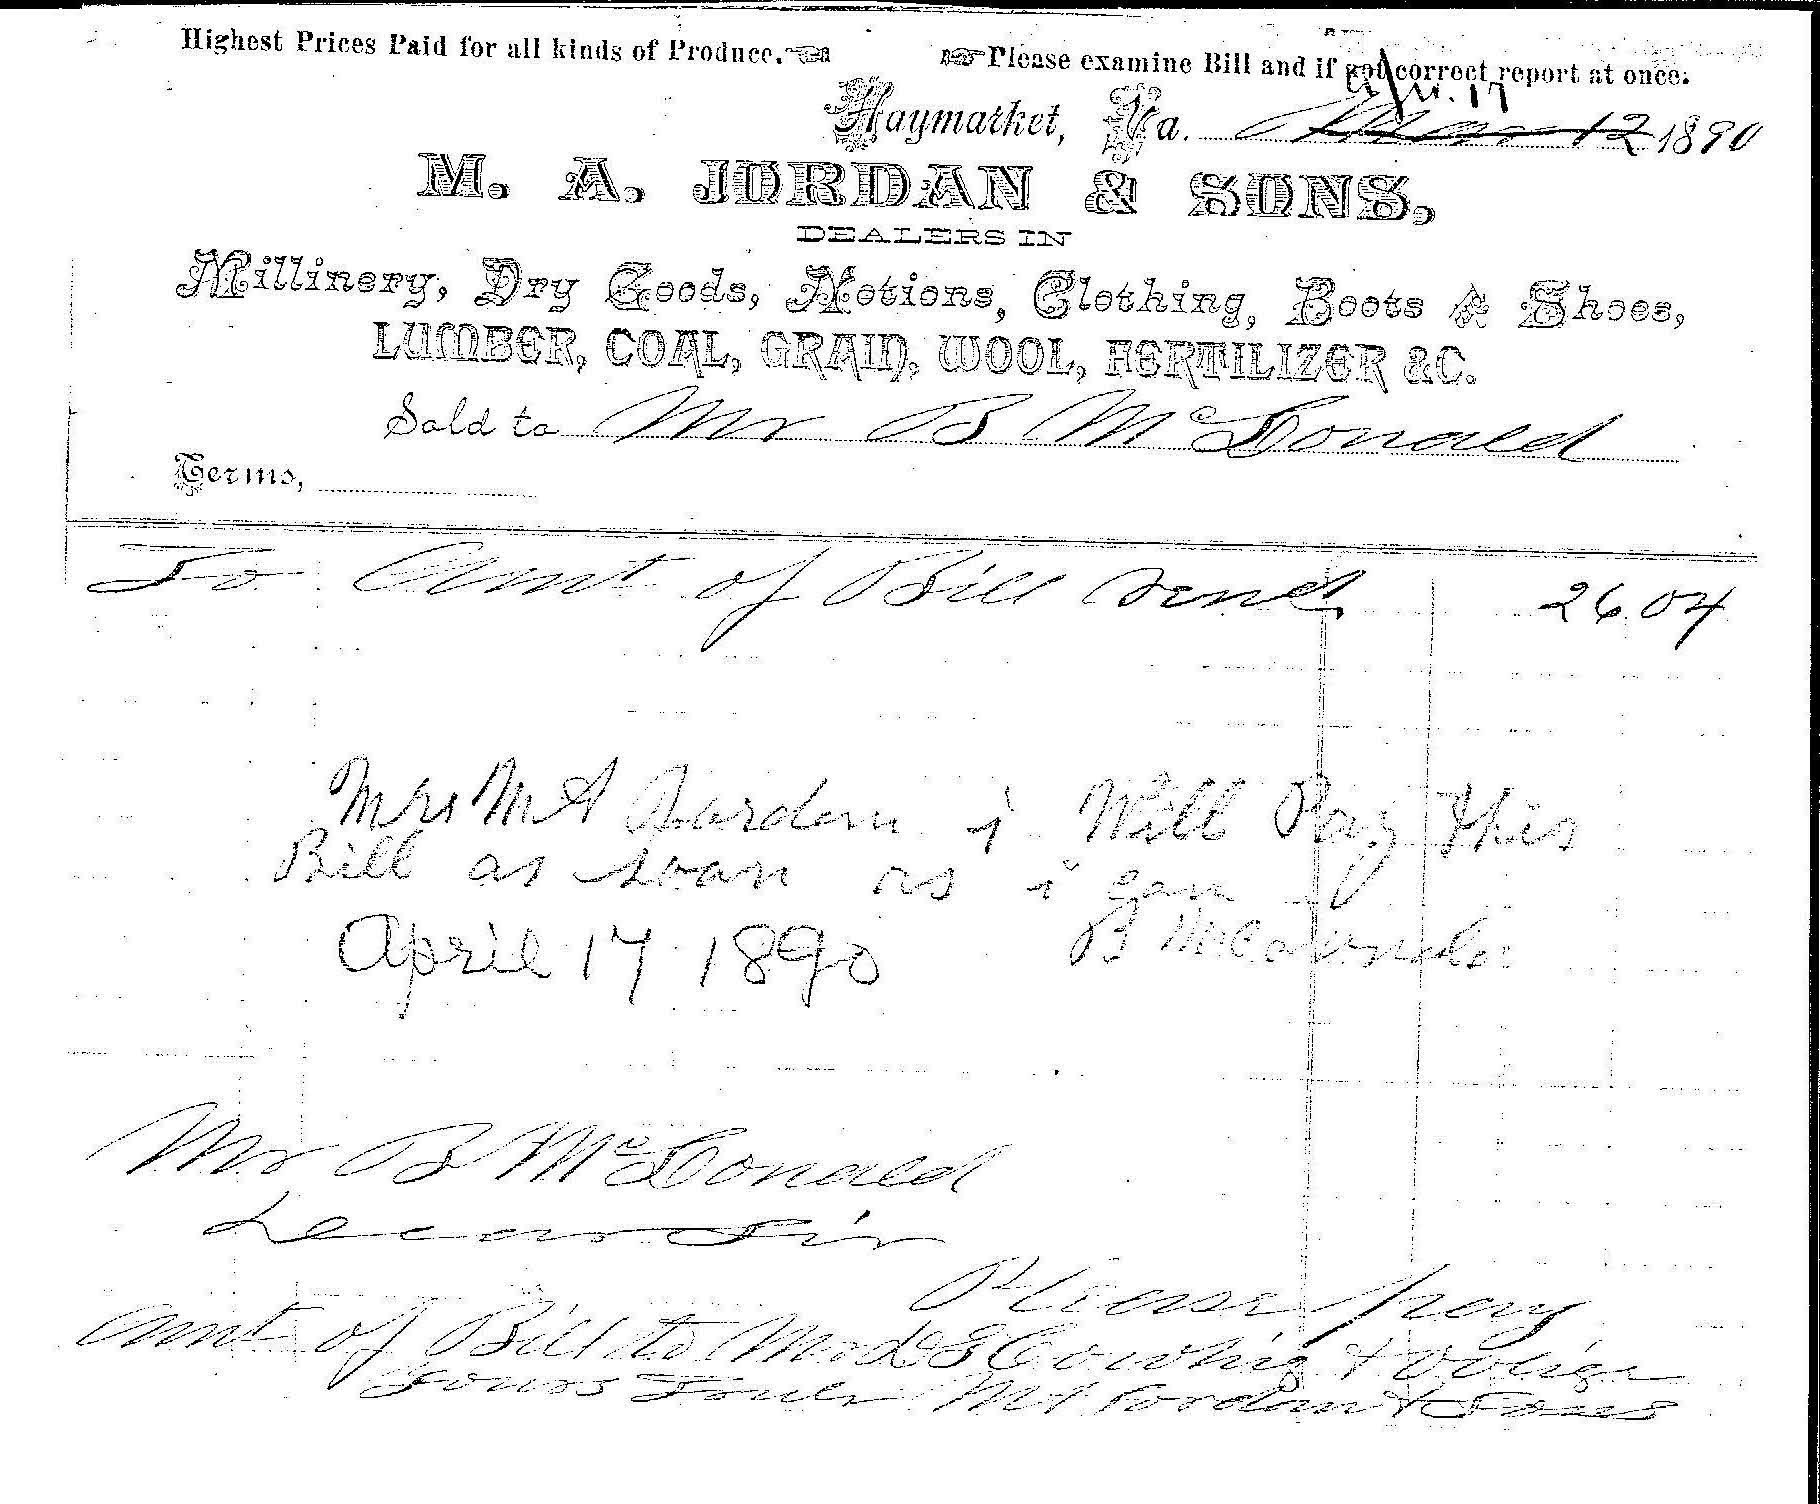 Highest Prices Paid for all kinds of Produce. Please examine Bill and if not correct report at once.
17
Haymarket, Va. 12 1890
M. A. JORDAN & SONS,
DEALERS IN
Millinery, Dry Goods, Notions, Clothing, Boots & Shoes,
LUMBER, COAL, GRAIN, WOOL, FERTILIZER &C.
Sold to Mr B McDonald
Terms,
To Amt of Bill rend 26.04
Mrs M A i Will Pay this
Bill as soan as i can
April 17 1890 B
Mr B McDonald
Dear Sir
Please pay
Amt of Bill to
Yours Truly MA Jordan & Sons